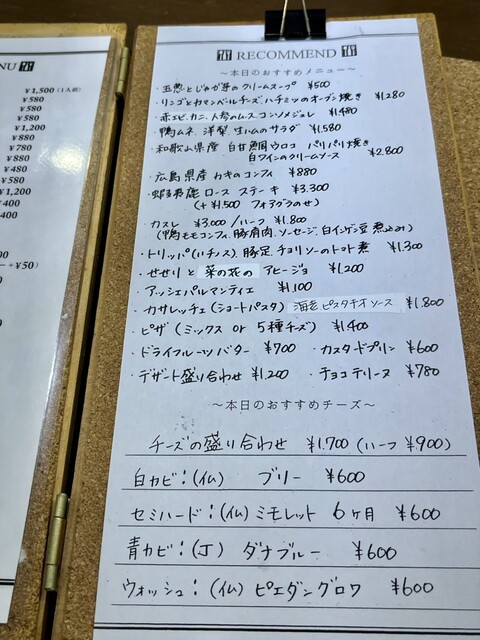 NU
¥1,500 (1人前)
¥580
¥580
¥1,200
¥880
¥780
¥480
¥580
¥1,200
¥400
¥400
+ ¥50)
RECOMMEND
～本日のおすすめメニュー～
・玉葱とじゃが芋のクリームスープ ¥500
・リンゴとカマンベールチーズ、ハチミツのオーブン焼き ¥1,280
・赤エビ、カニ、人参のムース コンソメジュレ ¥1,480
・鴨ムネ、洋梨、生ハムのサラダ ¥1,580
・和歌山県産 白甘鯛 ウロコ パリパリ焼き
白ワインのクリームソース ¥2,800
・広島県産 カキのコンフィ ¥880
・蝦夷鹿 ロース ステーキ ¥3,300
(+¥1,500 フォアグラのせ)
・カスレ ¥3,000 /ハーフ ¥1,800
(鴨モモコンフィ、豚肩肉、ソーセージ、白インゲン豆 煮込み)
・トリッパ(ハチノス)、豚足、チョリソーのトマト煮 ¥1,300
・せせりと 菜の花の アヒージョ ¥1,200
・アッシェパルマンティエ ¥1,100
・カサレッチェ(ショートパスタ) 海老、ピスタチオソース ¥1,800
・ピザ (ミックス or 5種チーズ) ¥1,400
・ドライフルーツバター ¥700 ・カスタードプリン ¥600
・デザート盛り合わせ ¥1,200 ・チョコテリーヌ ¥780
～本日のおすすめチーズ～
チーズの盛り合わせ ¥1,700 (ハーフ ¥900)
白カビ：(仏) ブリー ¥600
セミハード：(仏) ミモレット 6ヶ月 ¥600
青カビ：(J) ダナブルー ¥600
ウォッシュ：(仏) ピエダングロワ ¥600